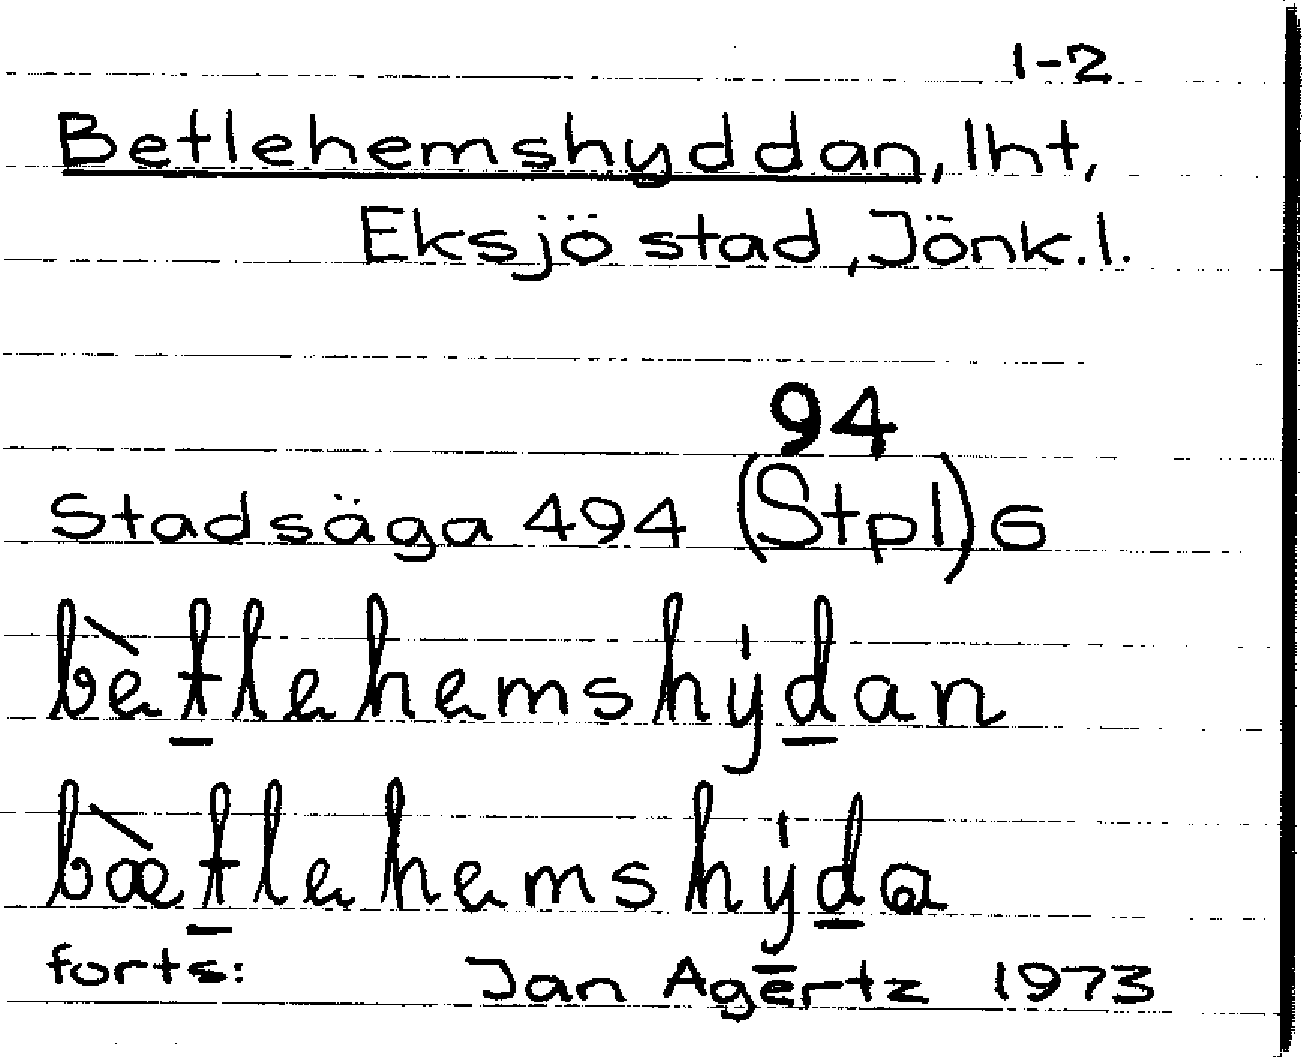 1-2
Betlehemshyddan, lht,
Eksjö stad, Jönk.l.
94
Stadsäga 494 (Stpl) G
bètlehemshýdan
bætlehemshýda
forts: Jan Agertz 1973